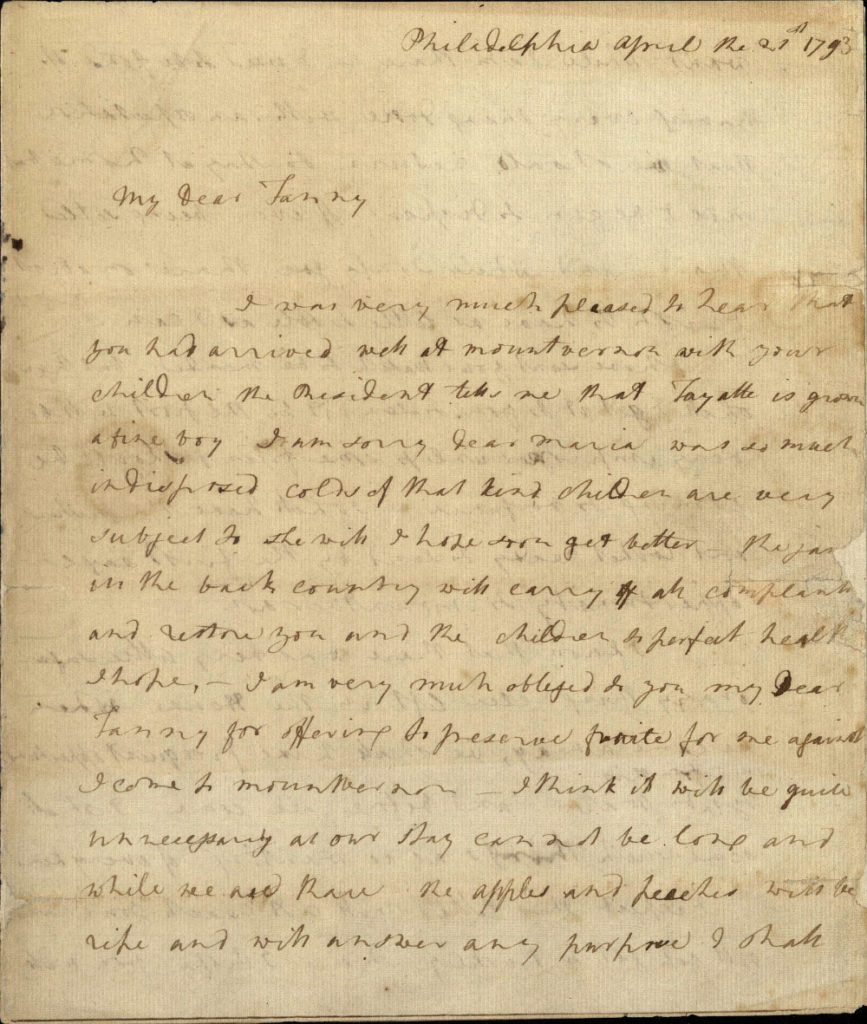 Philadelphia April the 21st 1793
My Dear Fanny
I was very much pleased to hear that
you had arrived well at mountvernon with your
children the President tells me that Fayatte is grown
a fine boy I am sorry dear maria was so much
indisposed colds of that kind children are very
subject to she will I hope soon get better the
in the back country will carry off all complants
and restore you and the children to perfect health
I hope, – I am very much obliged to you my Dear
Fanny for offering to preserve fruite for me against
I come to mountvernon – I think it will be quite
unnecessary as our stay cannot be long and
while we are thare the apples and peaches will be
ripe and will answer any purpose I shall